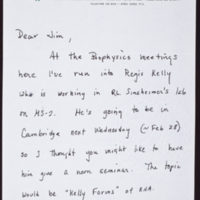 Dear Jim,
At the Biophysics meetings
here I've run into Regis Kelly
who is working in R.L. Sinsheimer's lab
on MS-2. He's going to be in
Cambridge next Wednesday (~ Feb 28)
so I thought you might like to have
him give a noon seminar. The topic
would be "Kelly Forms" of RNA.